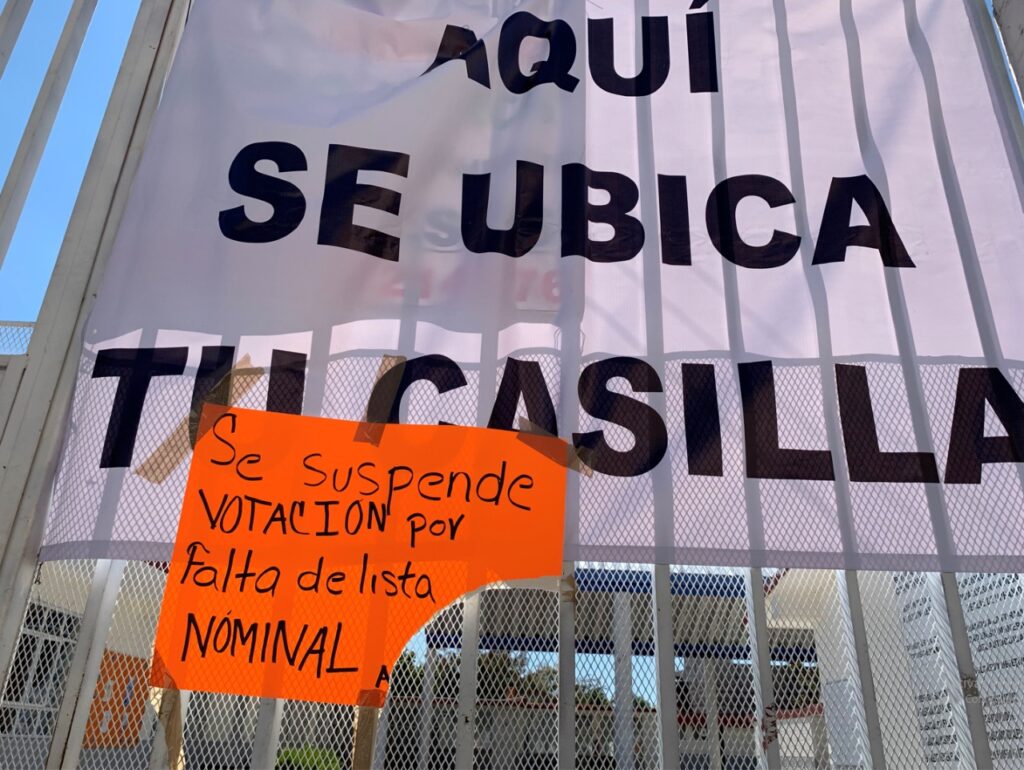 AQUÍ
SE UBICA
TU CASILLA
Se suspende
VOTACIÓN por
falta de lista
NÓMINAL